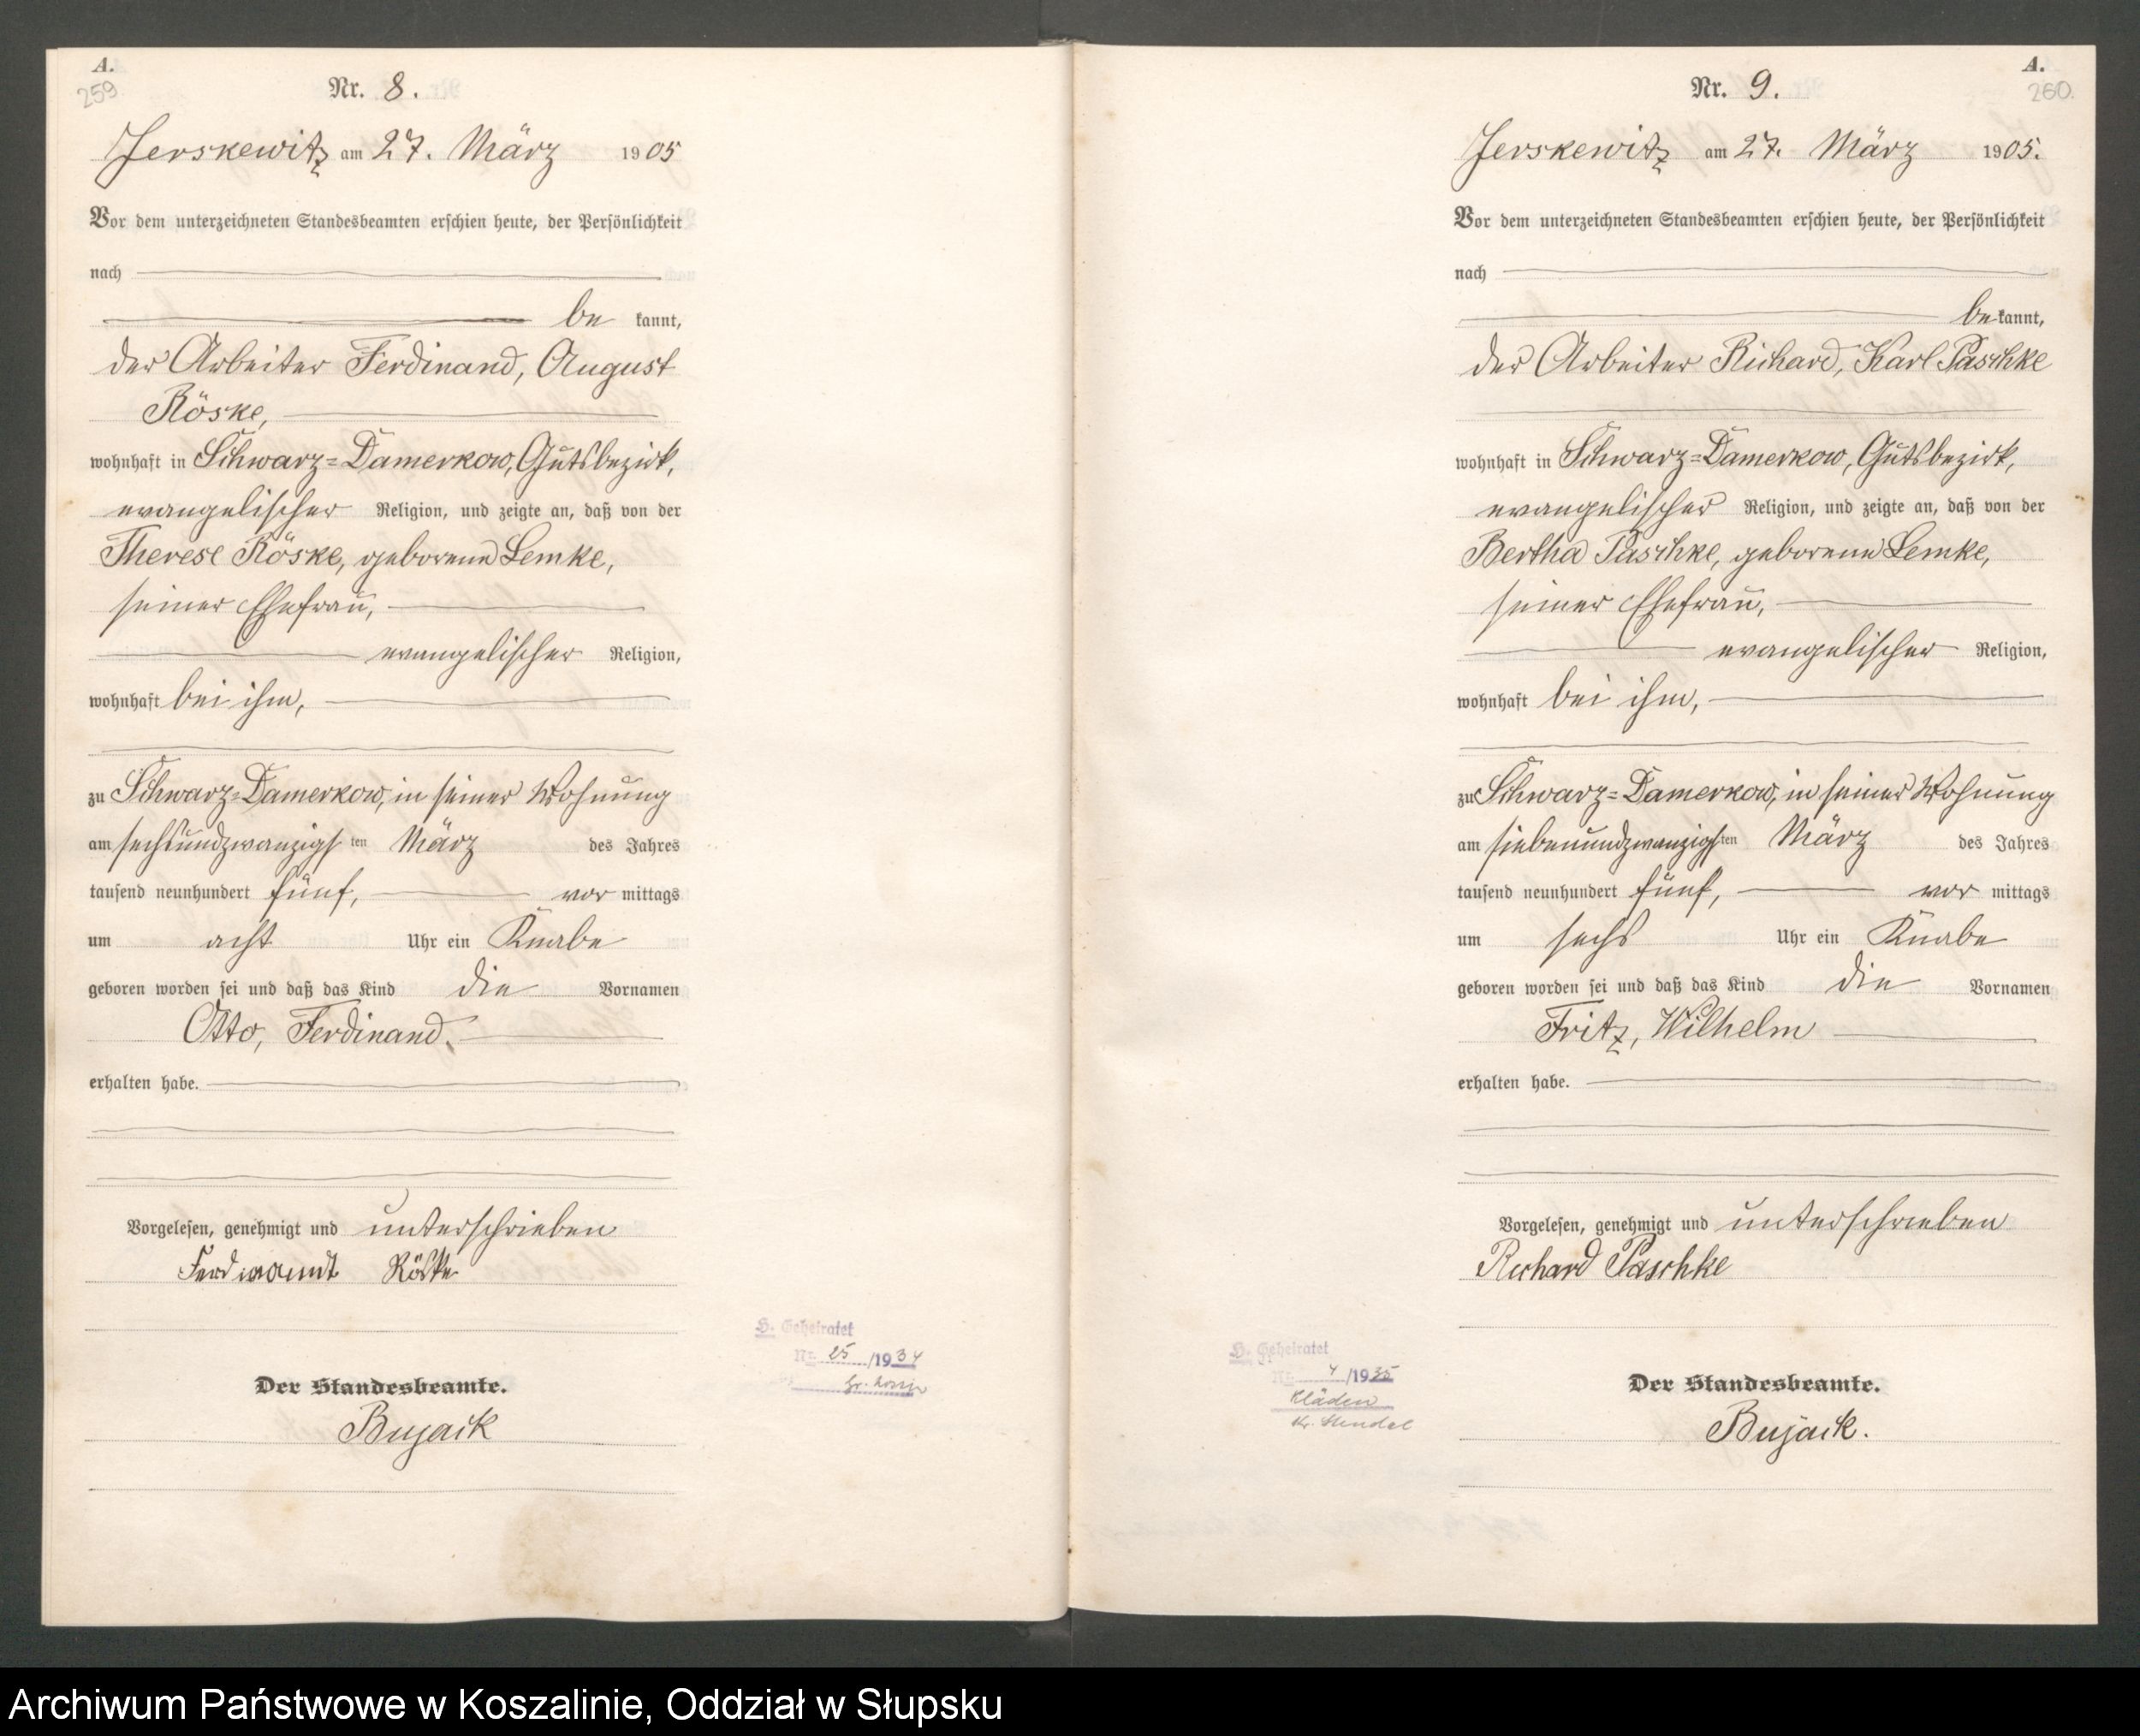 A.
259
Nr. 8.
Jerskewitz am 27. März 1905
Vor dem unterzeichneten Standesbeamten erschien heute, der Persönlichkeit
nach
be kannt,
der Arbeiter Ferdinand, August
Röske,
wohnhaft in Schwarz=Damerkow, Gutsbezirk,
evangelischer Religion, und zeigte an, daß von der
Therese Röske, geborene Lemke,
seiner Ehefrau,
evangelischer Religion,
wohnhaft bei ihm,
zu Schwarz=Damerkow, in seiner Wohnung
am sechsundzwanzigsten März des Jahres
tausend neunhundert fünf, vor mittags
um acht Uhr ein Knabe
geboren worden sei und daß das Kind die Vornamen
Otto, Ferdinand.
erhalten habe.
Vorgelesen, genehmigt und unterschrieben
Ferdinandt Röske
H. Geheiratet
Nr. 25 /1934
Der Standesbeamte.
Bujack
A.
260.
Nr. 9.
Jerskewitz am 27. März 1905.
Vor dem unterzeichneten Standesbeamten erschien heute, der Persönlichkeit
nach
be kannt,
der Arbeiter Richard, Karl Paschke
wohnhaft in Schwarz=Damerkow, Gutsbezirk,
evangelischer Religion, und zeigte an, daß von der
Bertha Paschke, geborene Lemke,
seiner Ehefrau,
evangelischer Religion,
wohnhaft bei ihm,
zu Schwarz=Damerkow, in seiner Wohnung
am siebenundzwanzigsten März des Jahres
tausend neunhundert fünf, vor mittags
um sechs Uhr ein Knabe
geboren worden sei und daß das Kind die Vornamen
Fritz, Wilhelm
erhalten habe.
Vorgelesen, genehmigt und unterschrieben
Richard Paschke
H. Geheiratet
Nr. 4 /1935
Kläden
Kr. Stendal
Der Standesbeamte.
Bujack.
Archiwum Państwowe w Koszalinie, Oddział w Słupsku